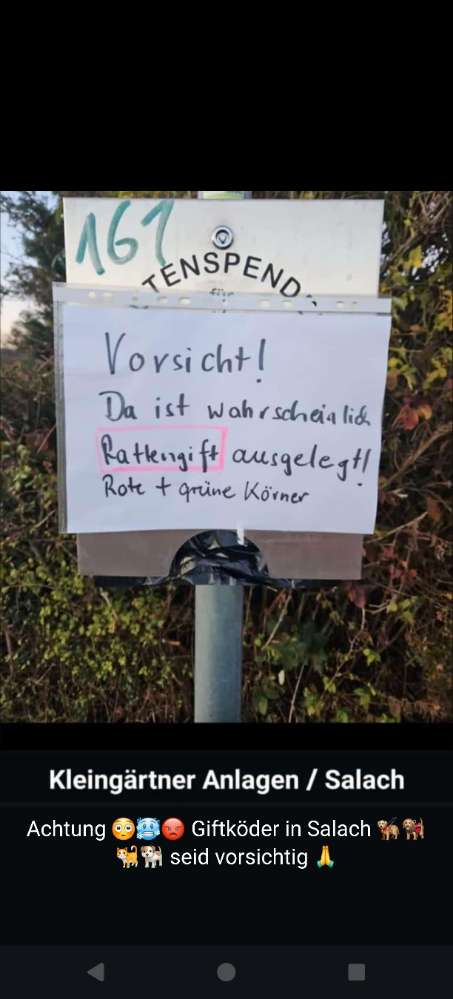 161
TENSPEND
für
Vorsicht!
Da ist wahrscheinlich
Rattengift ausgelegt!
Rote + grüne Körner
Kleingärtner Anlagen / Salach
Achtung 😳🥶😡 Giftköder in Salach 🐕🐕‍🦺
🐈🐕 seid vorsichtig 🙏